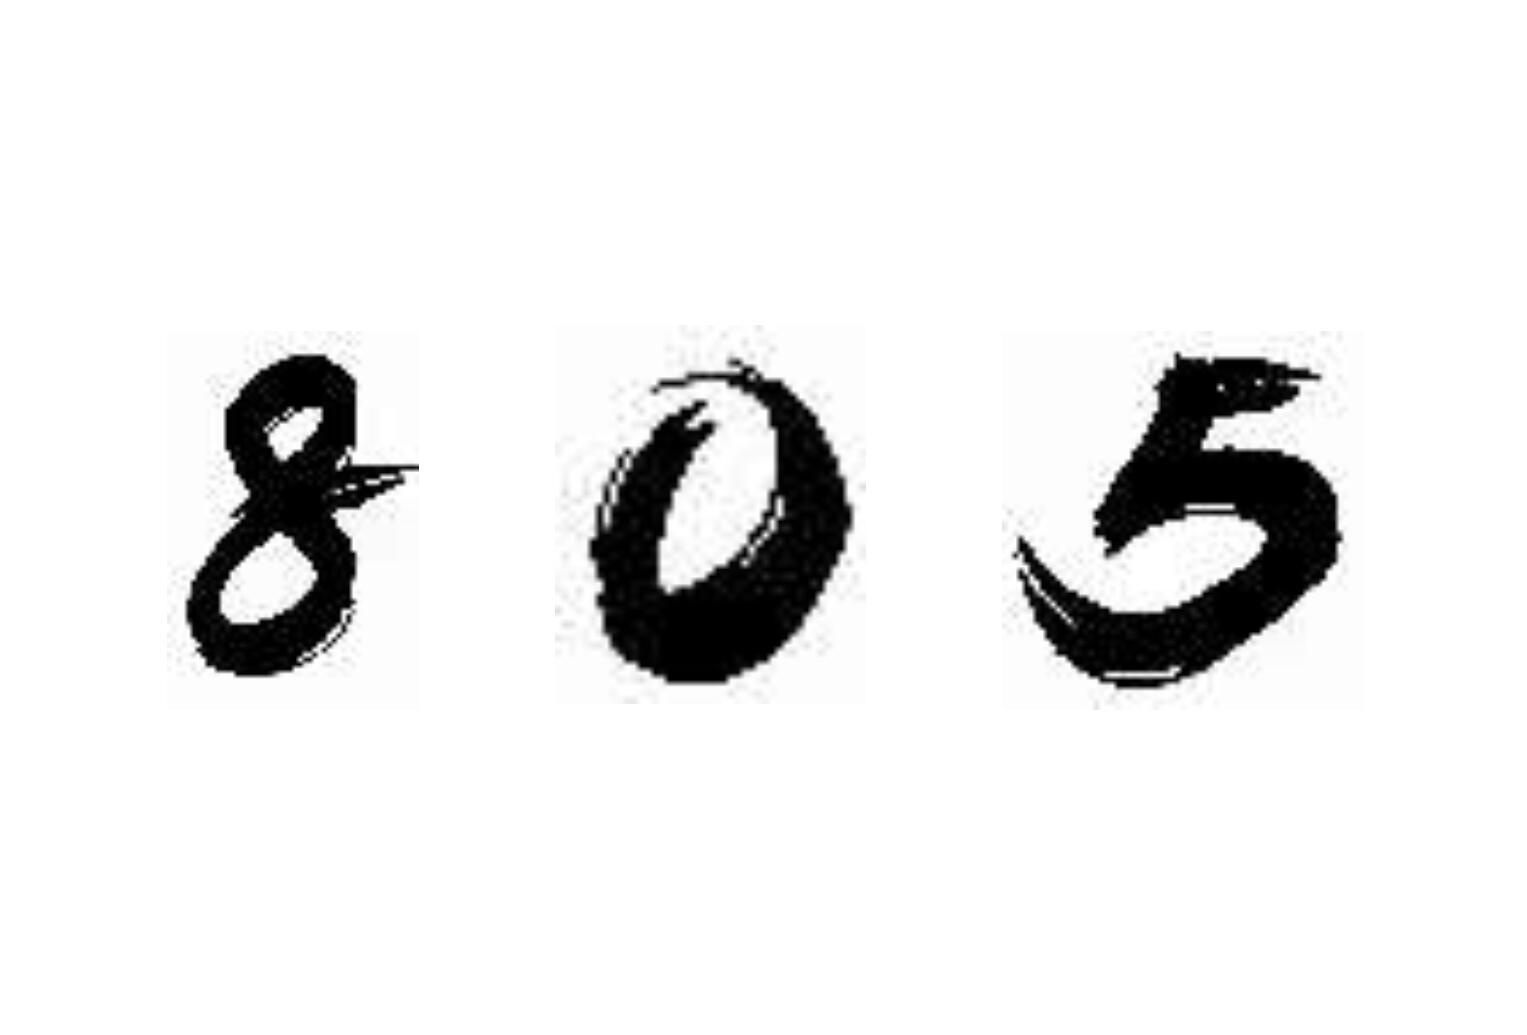 8 0 5